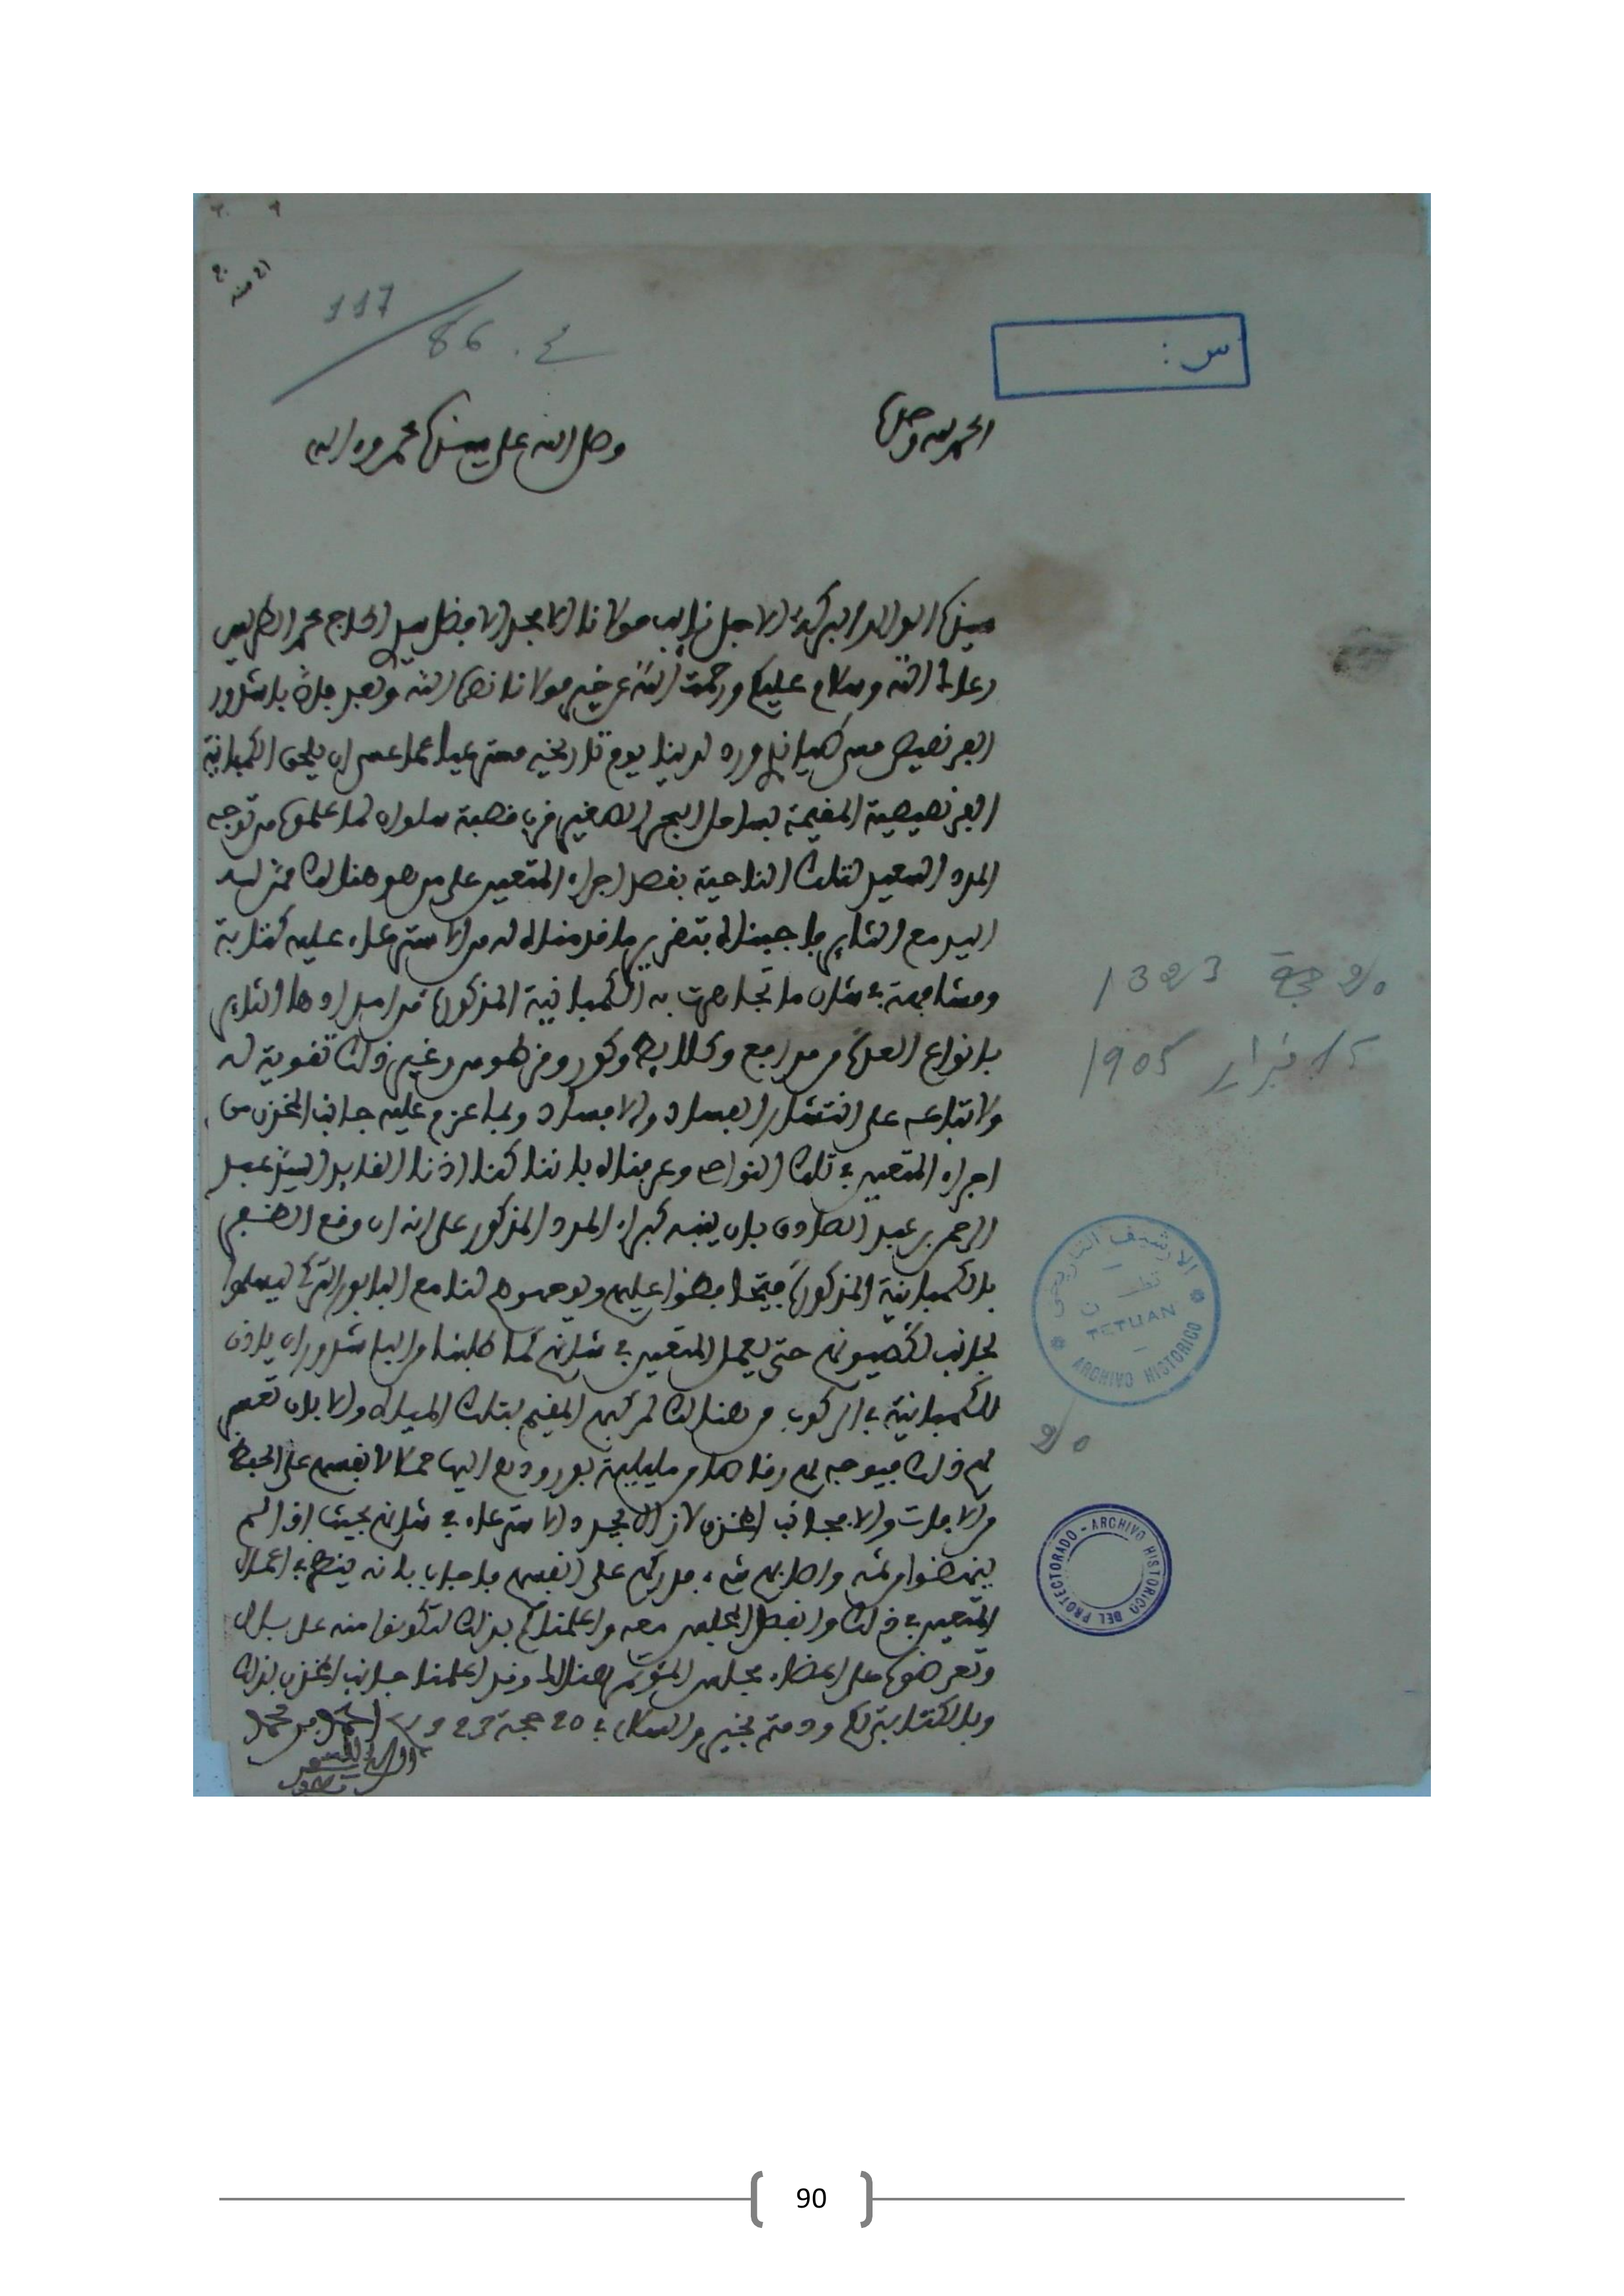 117
86 . ع
س :
الحمد لله وحده
وصلى الله على سيدنا محمد وءاله
سيدنا الوالد البركة الاجل نايب مولانا الامجد الافضل سيدي الحاج محمد الطريس
رعاك الله وسلام عليكم ورحمت الله عن خير مولانا نصره الله وبعد فان باشدور
الفرنصيص ورد لدينا يوم تاريخه مستفهما عما عسى ان يلحق الكمبانية
الفرنصيصية المقيمة بساحل البحر الصغير قرب قصبة سلوان لما علموه من توجه
المدد السعيد لتلك الناحية بقصد اجراء المتعين على من هو هنالك ممن له
اليد مع الثاير فاجبناه بتقرير ما قدمناه له من الاسترعاء عليه كتابة
ومشافهة في شان ما تجاهرت به الكمبانية المذكورة من امدادها الثاير
بانواع العدة من مدافع وكلايط وكور وقرطوس وغير ذلك تقوية له
ولاتباعه على انتشار الفساد والافساد وبما عزم عليه جانب المخزن من
اجراء المتعين في تلك النواحي وعرفناه باننا كنا اذنا القايد السيد عبد
الرحمن بن عبد الصادق بان ينبه كبراء المدد المذكور على انه ان وقع الظفر
بالكمبانية المذكورة فيتحافظوا عليهم ويوجهوهم لنا مع البابور التركي ليسلموا
لجانب لكصيونهم حتى يعمل المتعين في شانهم كما طلبنا من الباشدور ان ياذن
للكمبانية في الركوب من هنالك لمركبهم المقيم بتلك المياه والا بان تعسر
لهم ذلك فيتوجه لهم رقاصا من مليلية بورودهم اليها حملا لانفسهم على الحفظ
من الافات والا فجانب المخزن لازال يجدد الاسترعاء في شانهم بحيث اذا لم
ينهضوا من ثمه واصابهم شيء فدركهم على انفسهم فاجاب بانه ينظر في اعمال
المتعين في ذلك وانفصل المجلس معه واعلمناكم بذلك لتكونوا منه على بال
وتعرضوه على اعضاء مجلس المؤتمر هنالك وقد اعلمنا جانب المخزن بذلك
وبالكتابة لكم ودمتم بخير والسلام في 20 حجة 1323
20 حجة 1323
15 فبراير 1905
الارشيف التاريخي
تطوان
TETUAN
ARCHIVO HISTORICO
20
PROTECTORADO - ARCHIVO HISTORICO DEL
90